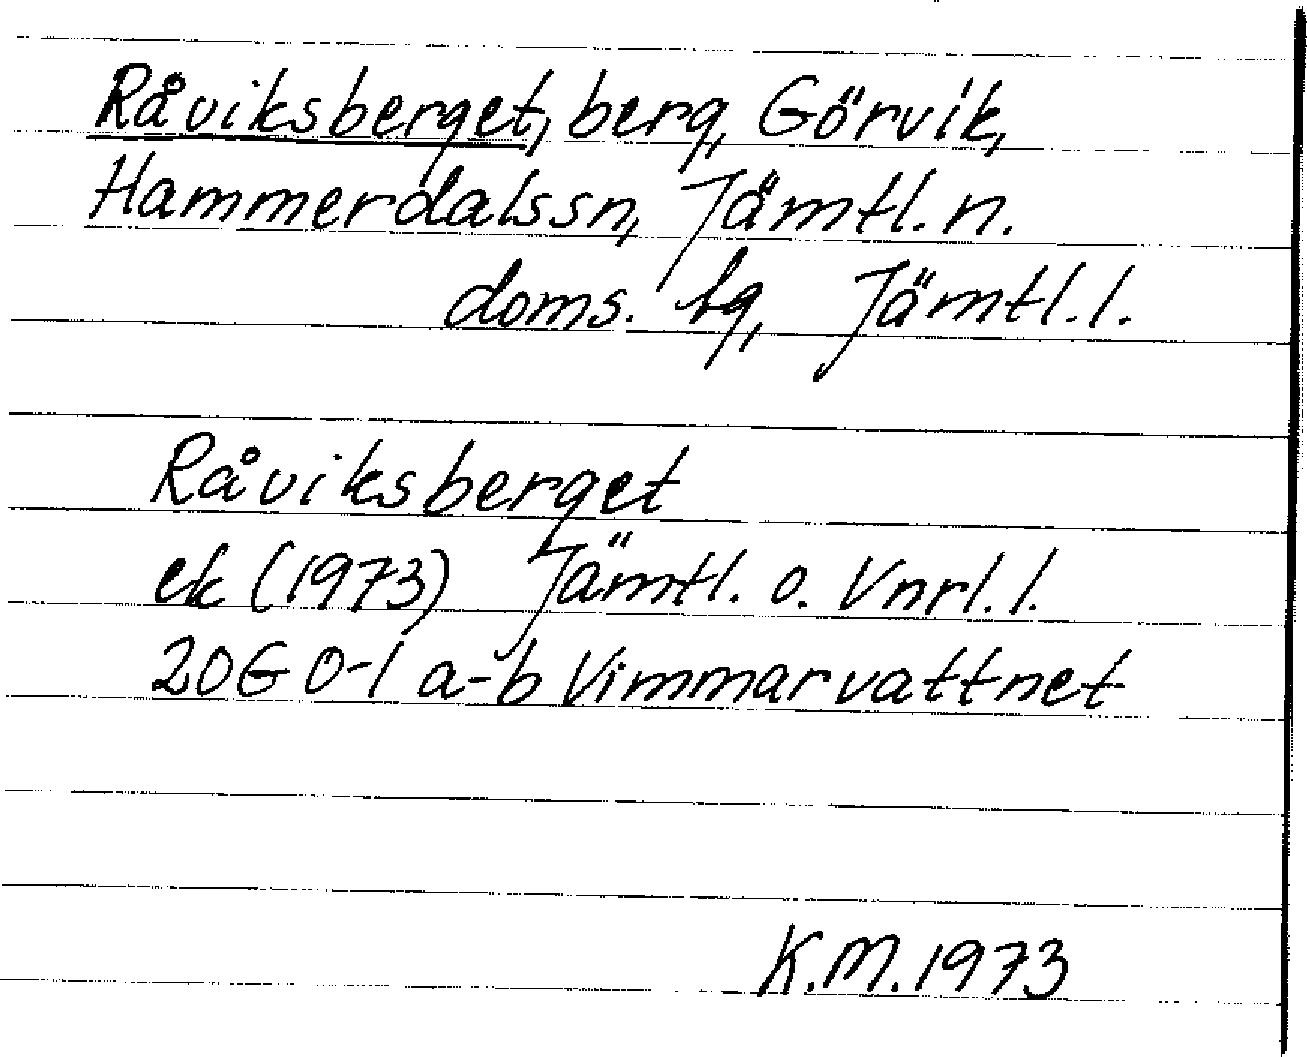 Råviksberget, berg, Görvik,
Hammerdals sn, Jämtl. n.
doms. bg, Jämtl. l.
Råviksberget
ek (1973) Jämtl. o. Vnrl. l.
20G 0-1 a-b Vimmarvattnet
K.M. 1973